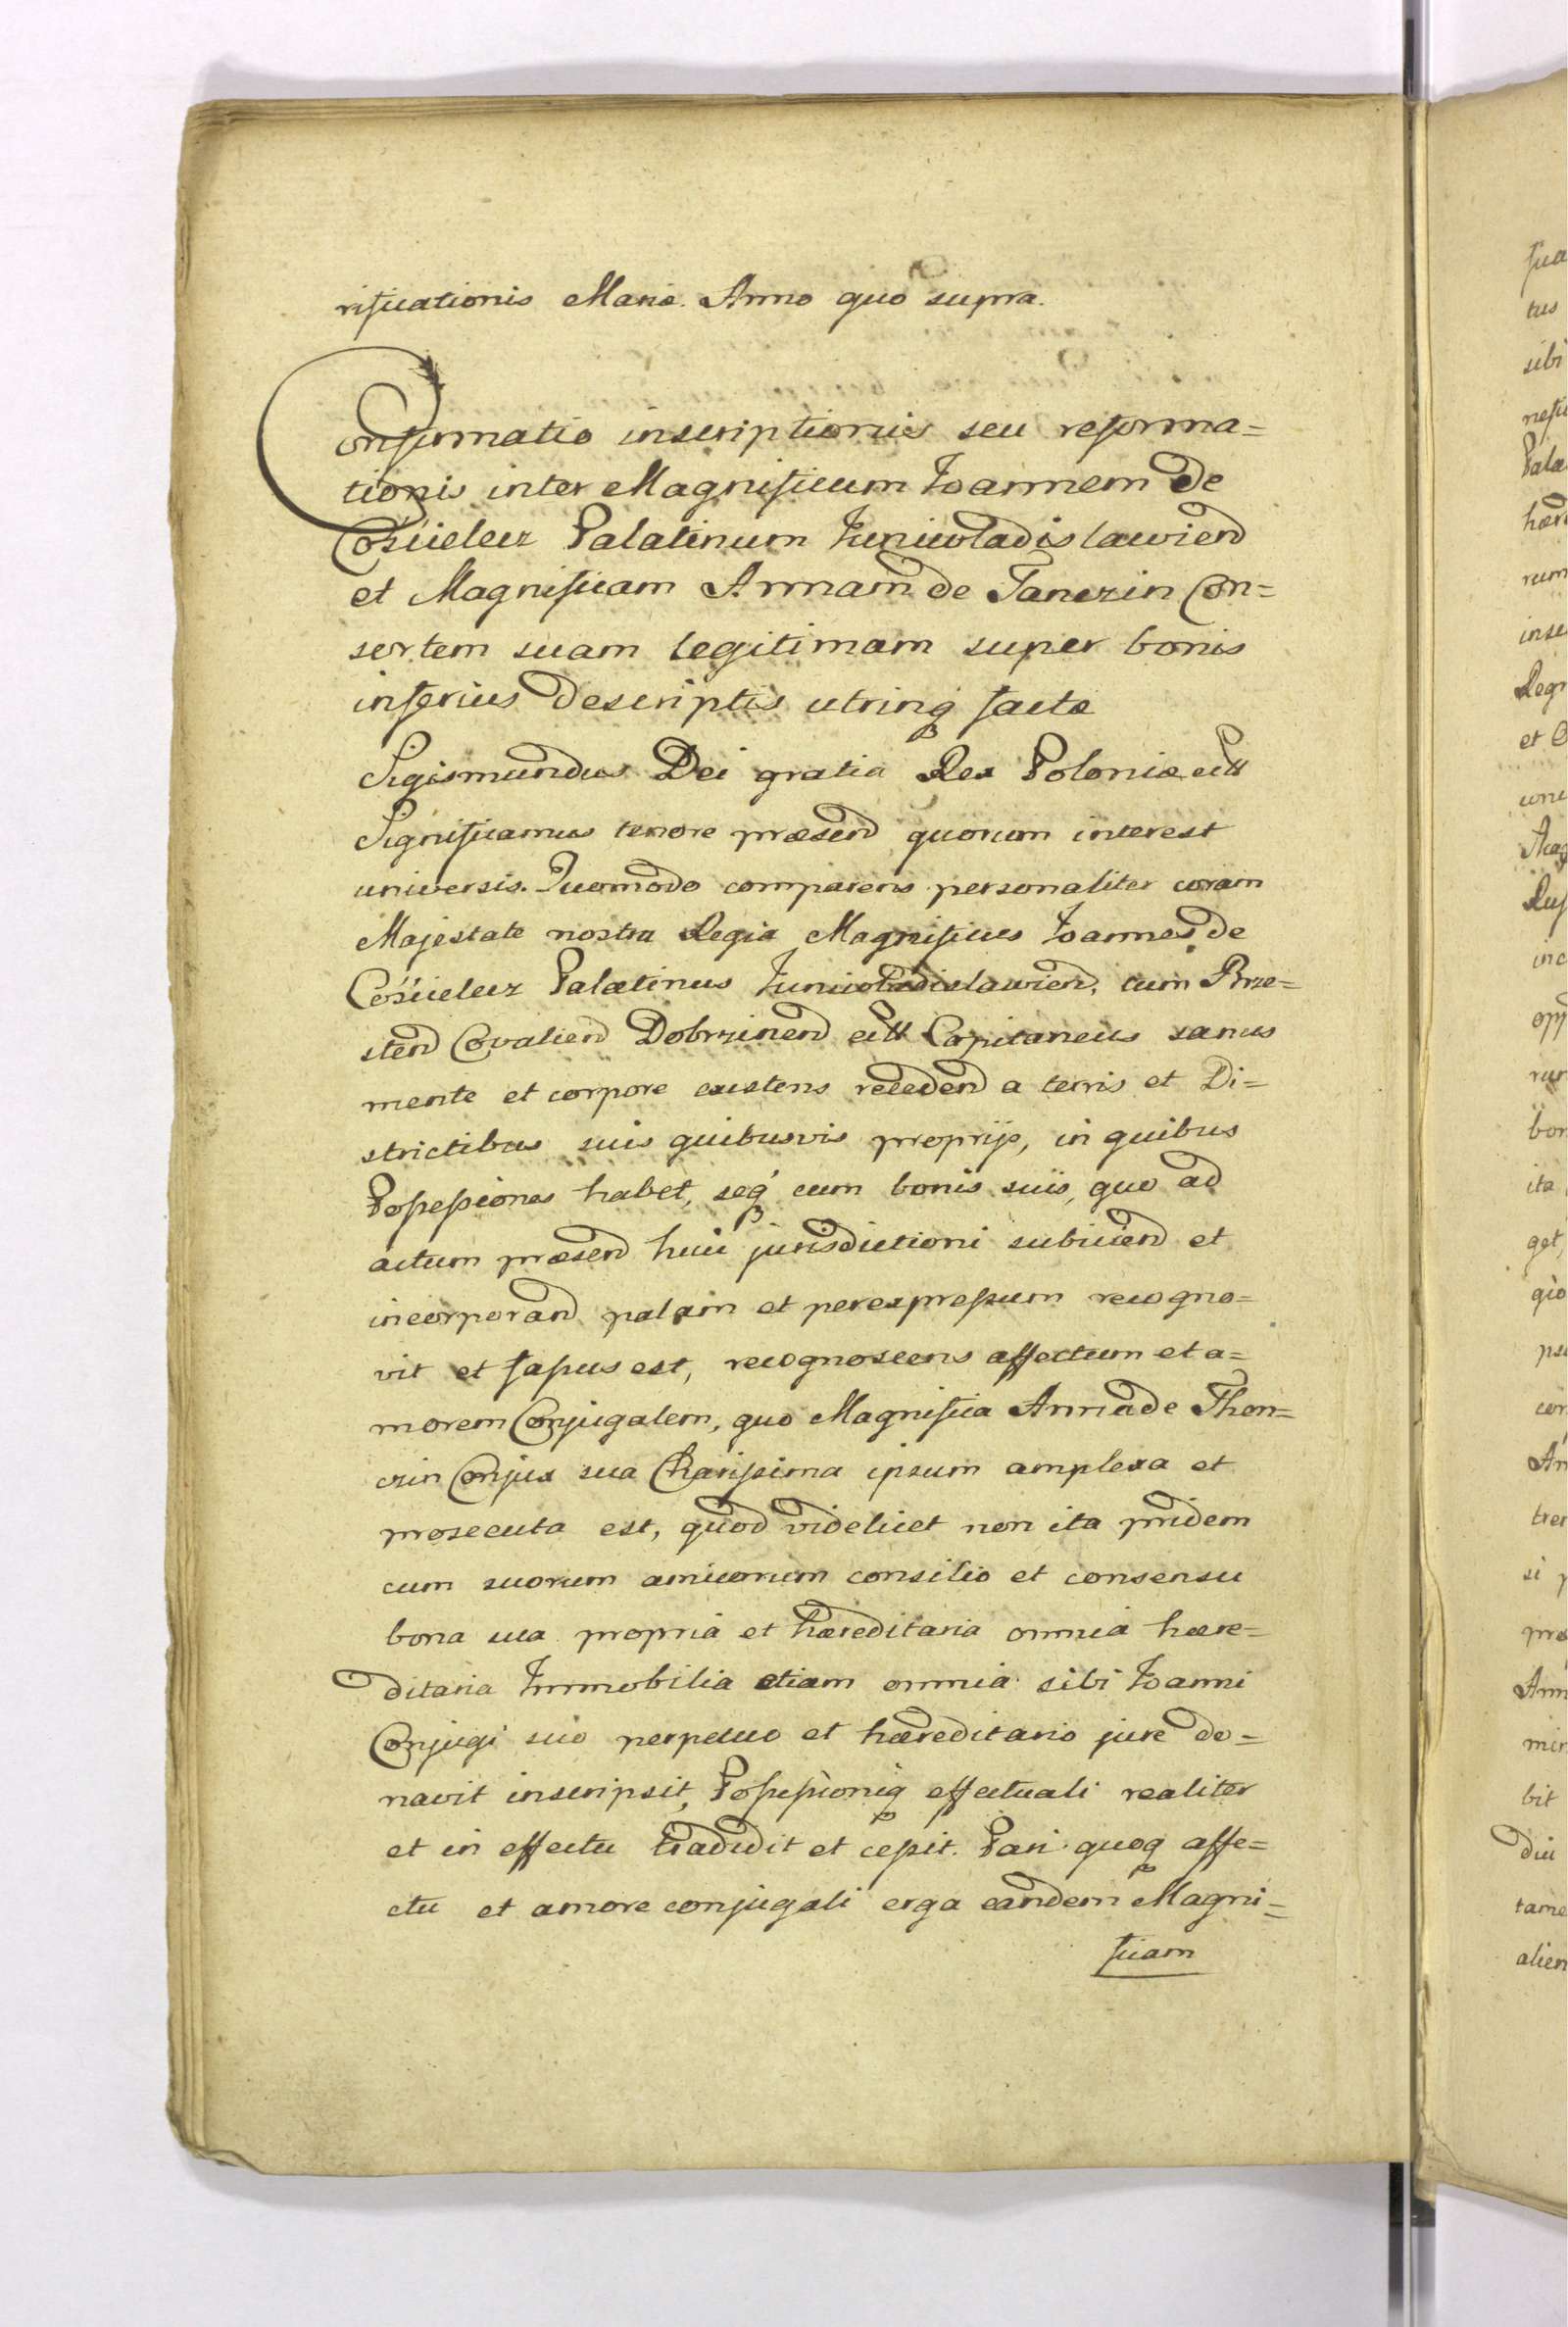 rificationis Mariæ. Anno quo supra.
Confirmatio inscriptionis seu reforma=
tionis inter Magnificum Joannem de
Coscielecz Palatinum Juniwladislawien
et Magnificam Annam de Tanczin Con=
sortem suam legitimam super bonis
inferius descriptis utrinq factæ
Sigismundus Dei gratia Rex Poloniæ etc
Significamus tenore præsen quorum interest
universis. Quomodo comparens personaliter coram
Majestate nostra Regia Magnificus Joannes de
Coscielecz Palatinus Juniwladislawien, cum Brze=
sten Covalien Dobrzinen etc Capitaneus sanus
mente et corpore existens receden a terris et Di=
strictibus suis quibusvis proprijs, in quibus
Possessiones habet, seq cum bonis suis, quo ad
actum præsen huic jurisdictioni subiicien et
incorporan palam et perexpressum recogno=
vit et fassus est, recognoscens affectum et a=
morem Conjugalem, quo Magnifica Anna de Then=
czin Conjux sua Charissima ipsum amplexa et
prosecuta est, quod videlicet non ita pridem
cum suorum amicorum consilio et consensu
bona sua propria et hæreditaria omnia hære=
ditaria Immobilia etiam omnia sibi Joanni
Conjugi suo perpetuo et hæreditario jure do=
navit inscripsit, Possessioniq effectuali realiter
et in effectu tradidit et cessit. Pari quoq affe=
ctu et amore conjugali erga eandem Magni=
ficam